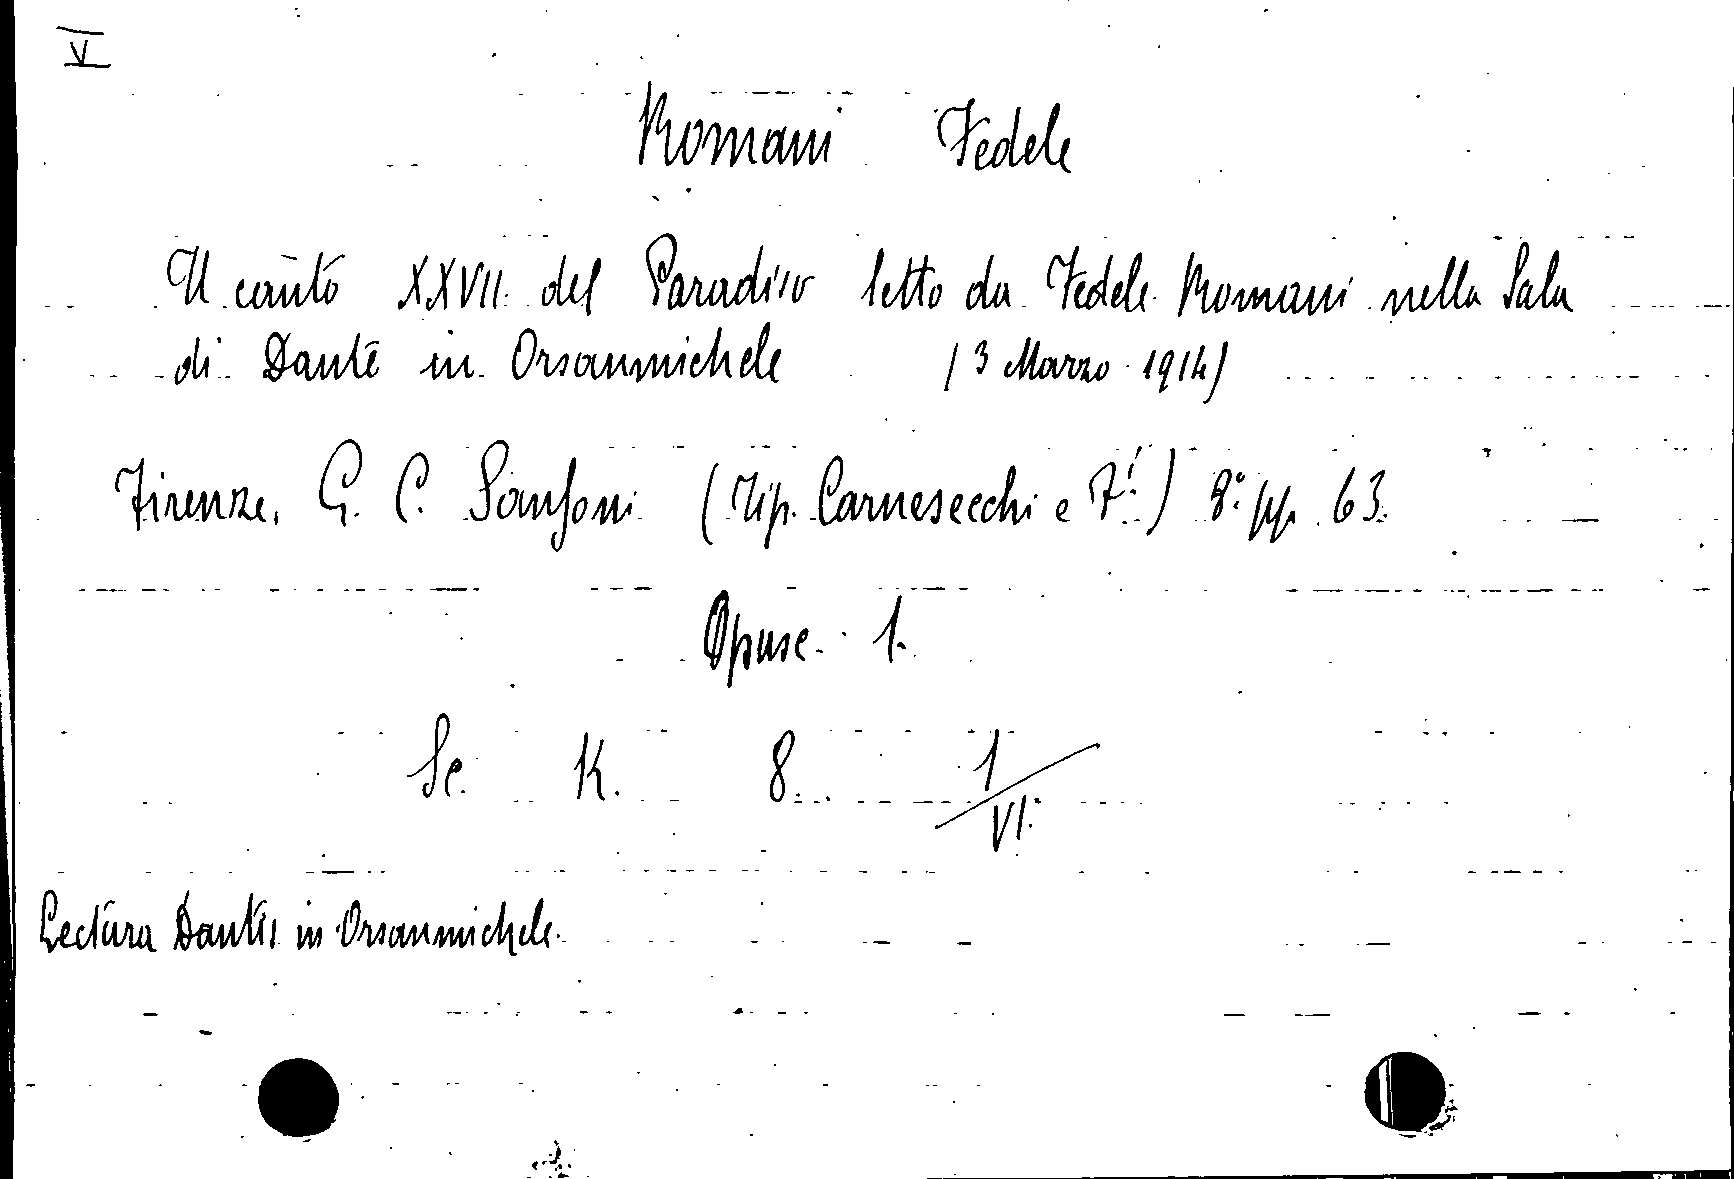 V
Romani Fedele
Il canto XXVII del Paradiso letto da Fedele Romani nella Sala
di Dante in Orsanmichele (3 Marzo 1914)
Firenze, G. C. Sansoni (Tip. Carnesecchi e F.i) 8.° pp. 63.
Opusc. 1.
Sc. K. 8. 1/VI.
Lectura Dantis in Orsanmichele.